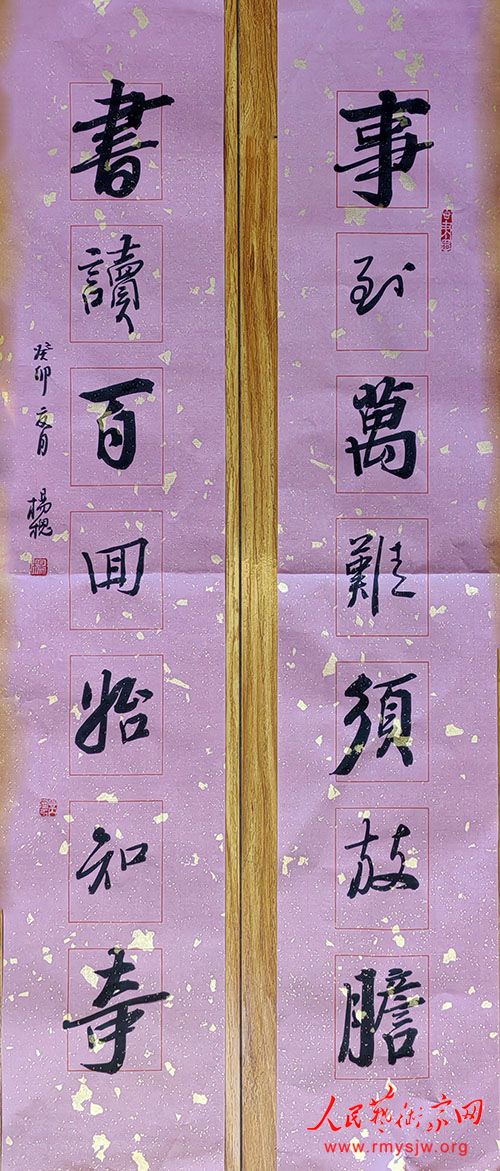 事到萬難須放膽
書讀百回始知奇
癸卯夏月 楊
人民藝術家网
www.rmysjw.org